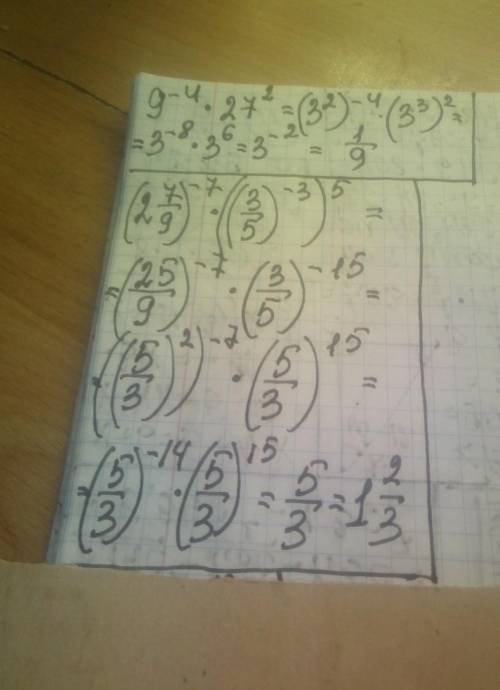 9^{-4} · 27^2 = (3^2)^{-4} · (3^3)^2 =
= 3^{-8} · 3^6 = 3^{-2} = \frac{1}{9}
(2\frac{7}{9})^{-7} · ((\frac{3}{5})^{-3})^5 =
= (\frac{25}{9})^{-7} · (\frac{3}{5})^{-15} =
= ((\frac{5}{3})^2)^{-7} · (\frac{5}{3})^{15} =
= (\frac{5}{3})^{-14} · (\frac{5}{3})^{15} = \frac{5}{3} = 1\frac{2}{3}